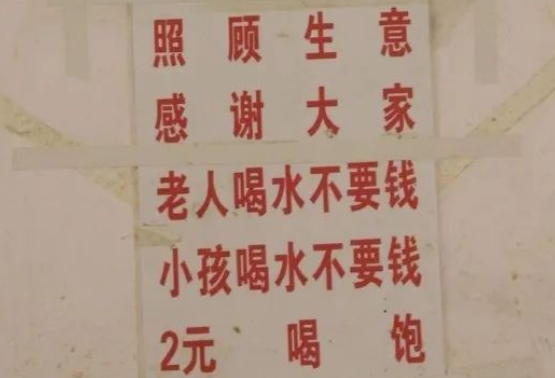 照顾生意
感谢大家
老人喝水不要钱
小孩喝水不要钱
2元喝饱